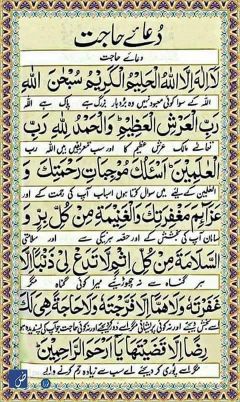 دُعائے حاجت
دعائے حاجت
لَا اِلٰهَ اِلَّا اللّٰهُ الْحَلِيْمُ الْكَرِيْمُ سُبْحٰنَ اللّٰهِ
اللہ کے سوا کوئی معبود نہیں وہ بڑا بردبار بزرگ ہے پاک ہے اللہ
رَبِّ الْعَرْشِ الْعَظِيْمِ وَالْحَمْدُ لِلّٰهِ رَبِّ
مالک عرش عظیم کا اور سب تعریفیں ہیں اللہ رب
الْعٰلَمِيْنَ اَسْئَلُكَ مُوْجِبَاتِ رَحْمَتِكَ وَ
العلمین کے لئے میں سوال کرتا ہوں اسباب آپ کی رحمت کے اور
عَزَآئِمَ مَغْفِرَتِكَ وَالْغَنِيْمَةَ مِنْ كُلِّ بِرٍّ وَّ
سامان آپ کی بخشش کے اور حصہ ہر نیکی سے اور سلامتی
السَّلَامَةَ مِنْ كُلِّ اِثْمٍ لَا تَدَعْ لِيْ ذَنْبًا اِلَّا
ہر گناہ سے نہ چھوڑیئے میرا کوئی گناہ مگر
غَفَرْتَهٗ وَلَا هَمًّا اِلَّا فَرَّجْتَهٗ وَلَا حَاجَةً هِيَ لَكَ
رِضًا اِلَّا قَضَيْتَهَا يَا اَرْحَمَ الرَّاحِمِيْنَ
مگر اسے پوری کر دیجئے اے سب سے زیادہ رحم کرنے والے